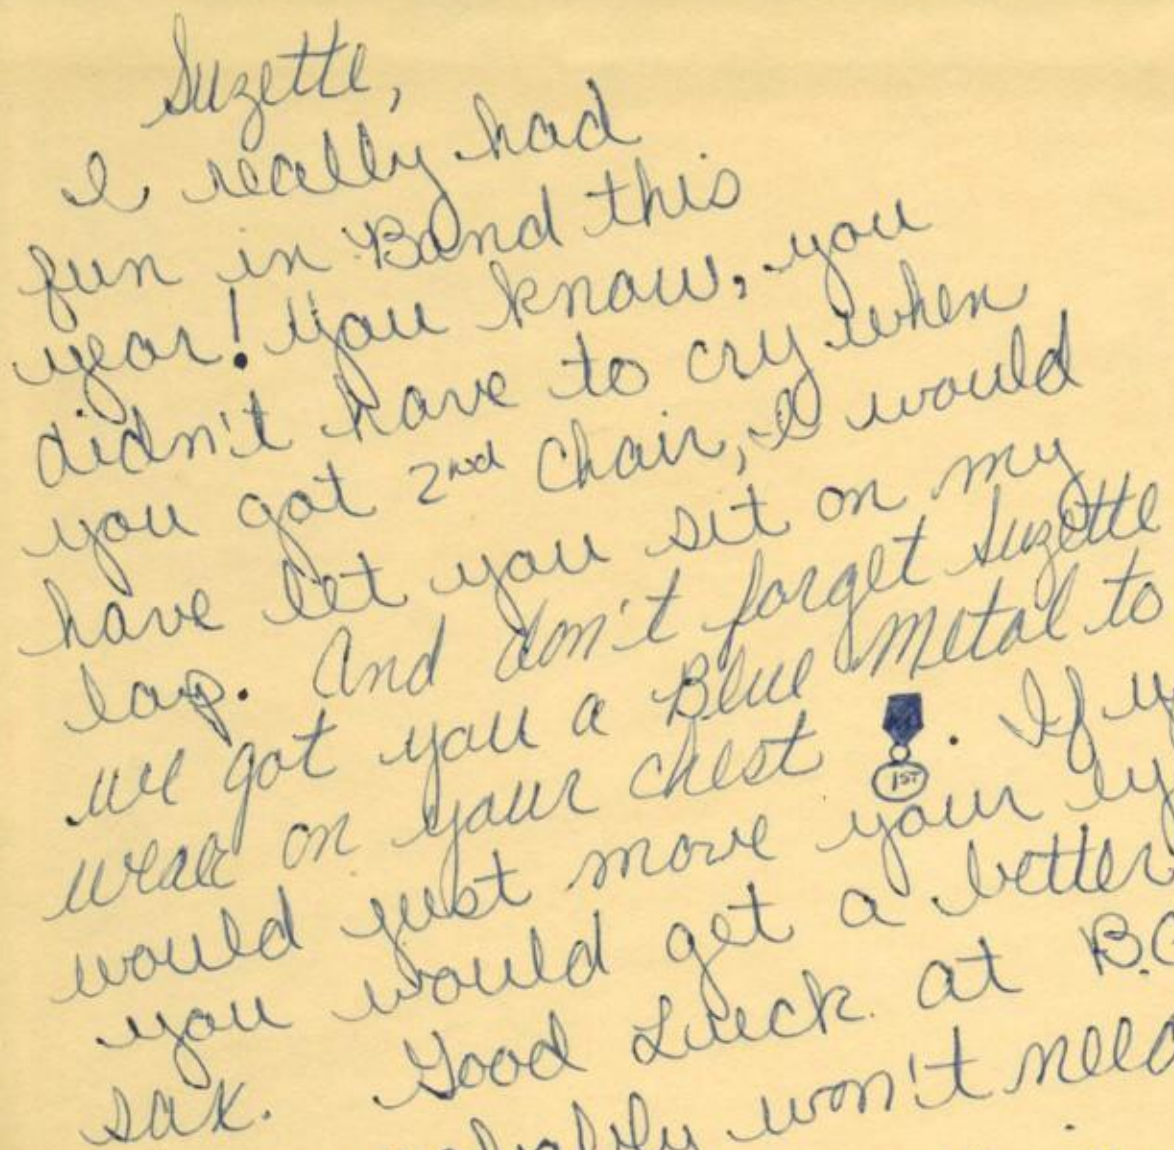 Suzette,
I really had
fun in Band this
year! You know, you
didn't have to cry when
you got 2nd chair, I would
have let you sit on my
lap. And don't forget Suzette
we got you a Blue Metal to
wear on your chest 1ST. If
would just move your
you would get a better
sax. Good Luck at B.C
won't need